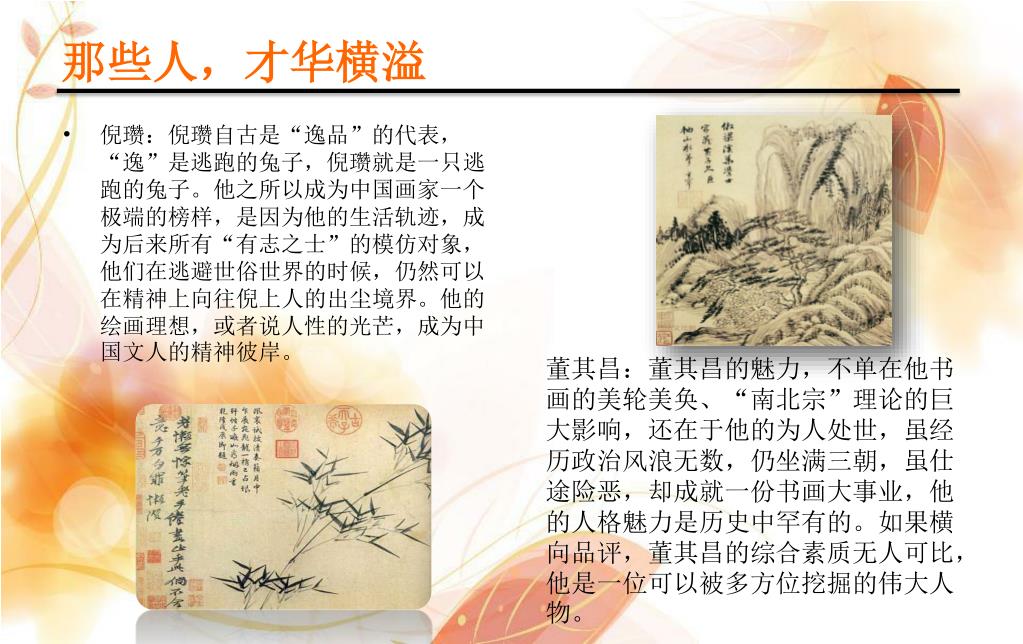 那些人，才华横溢
• 倪瓒：倪瓒自古是“逸品”的代表，
“逸”是逃跑的兔子，倪瓒就是一只逃
跑的兔子。他之所以成为中国画家一个
极端的榜样，是因为他的生活轨迹，成
为后来所有“有志之士”的模仿对象，
他们在逃避世俗世界的时候，仍然可以
在精神上向往倪上人的出尘境界。他的
绘画理想，或者说人性的光芒，成为中
国文人的精神彼岸。
董其昌：董其昌的魅力，不单在他书
画的美轮美奂、“南北宗”理论的巨
大影响，还在于他的为人处世，虽经
历政治风浪无数，仍坐满三朝，虽仕
途险恶，却成就一份书画大事业，他
的人格魅力是历史中罕有的。如果横
向品评，董其昌的综合素质无人可比，
他是一位可以被多方位挖掘的伟大人
物。